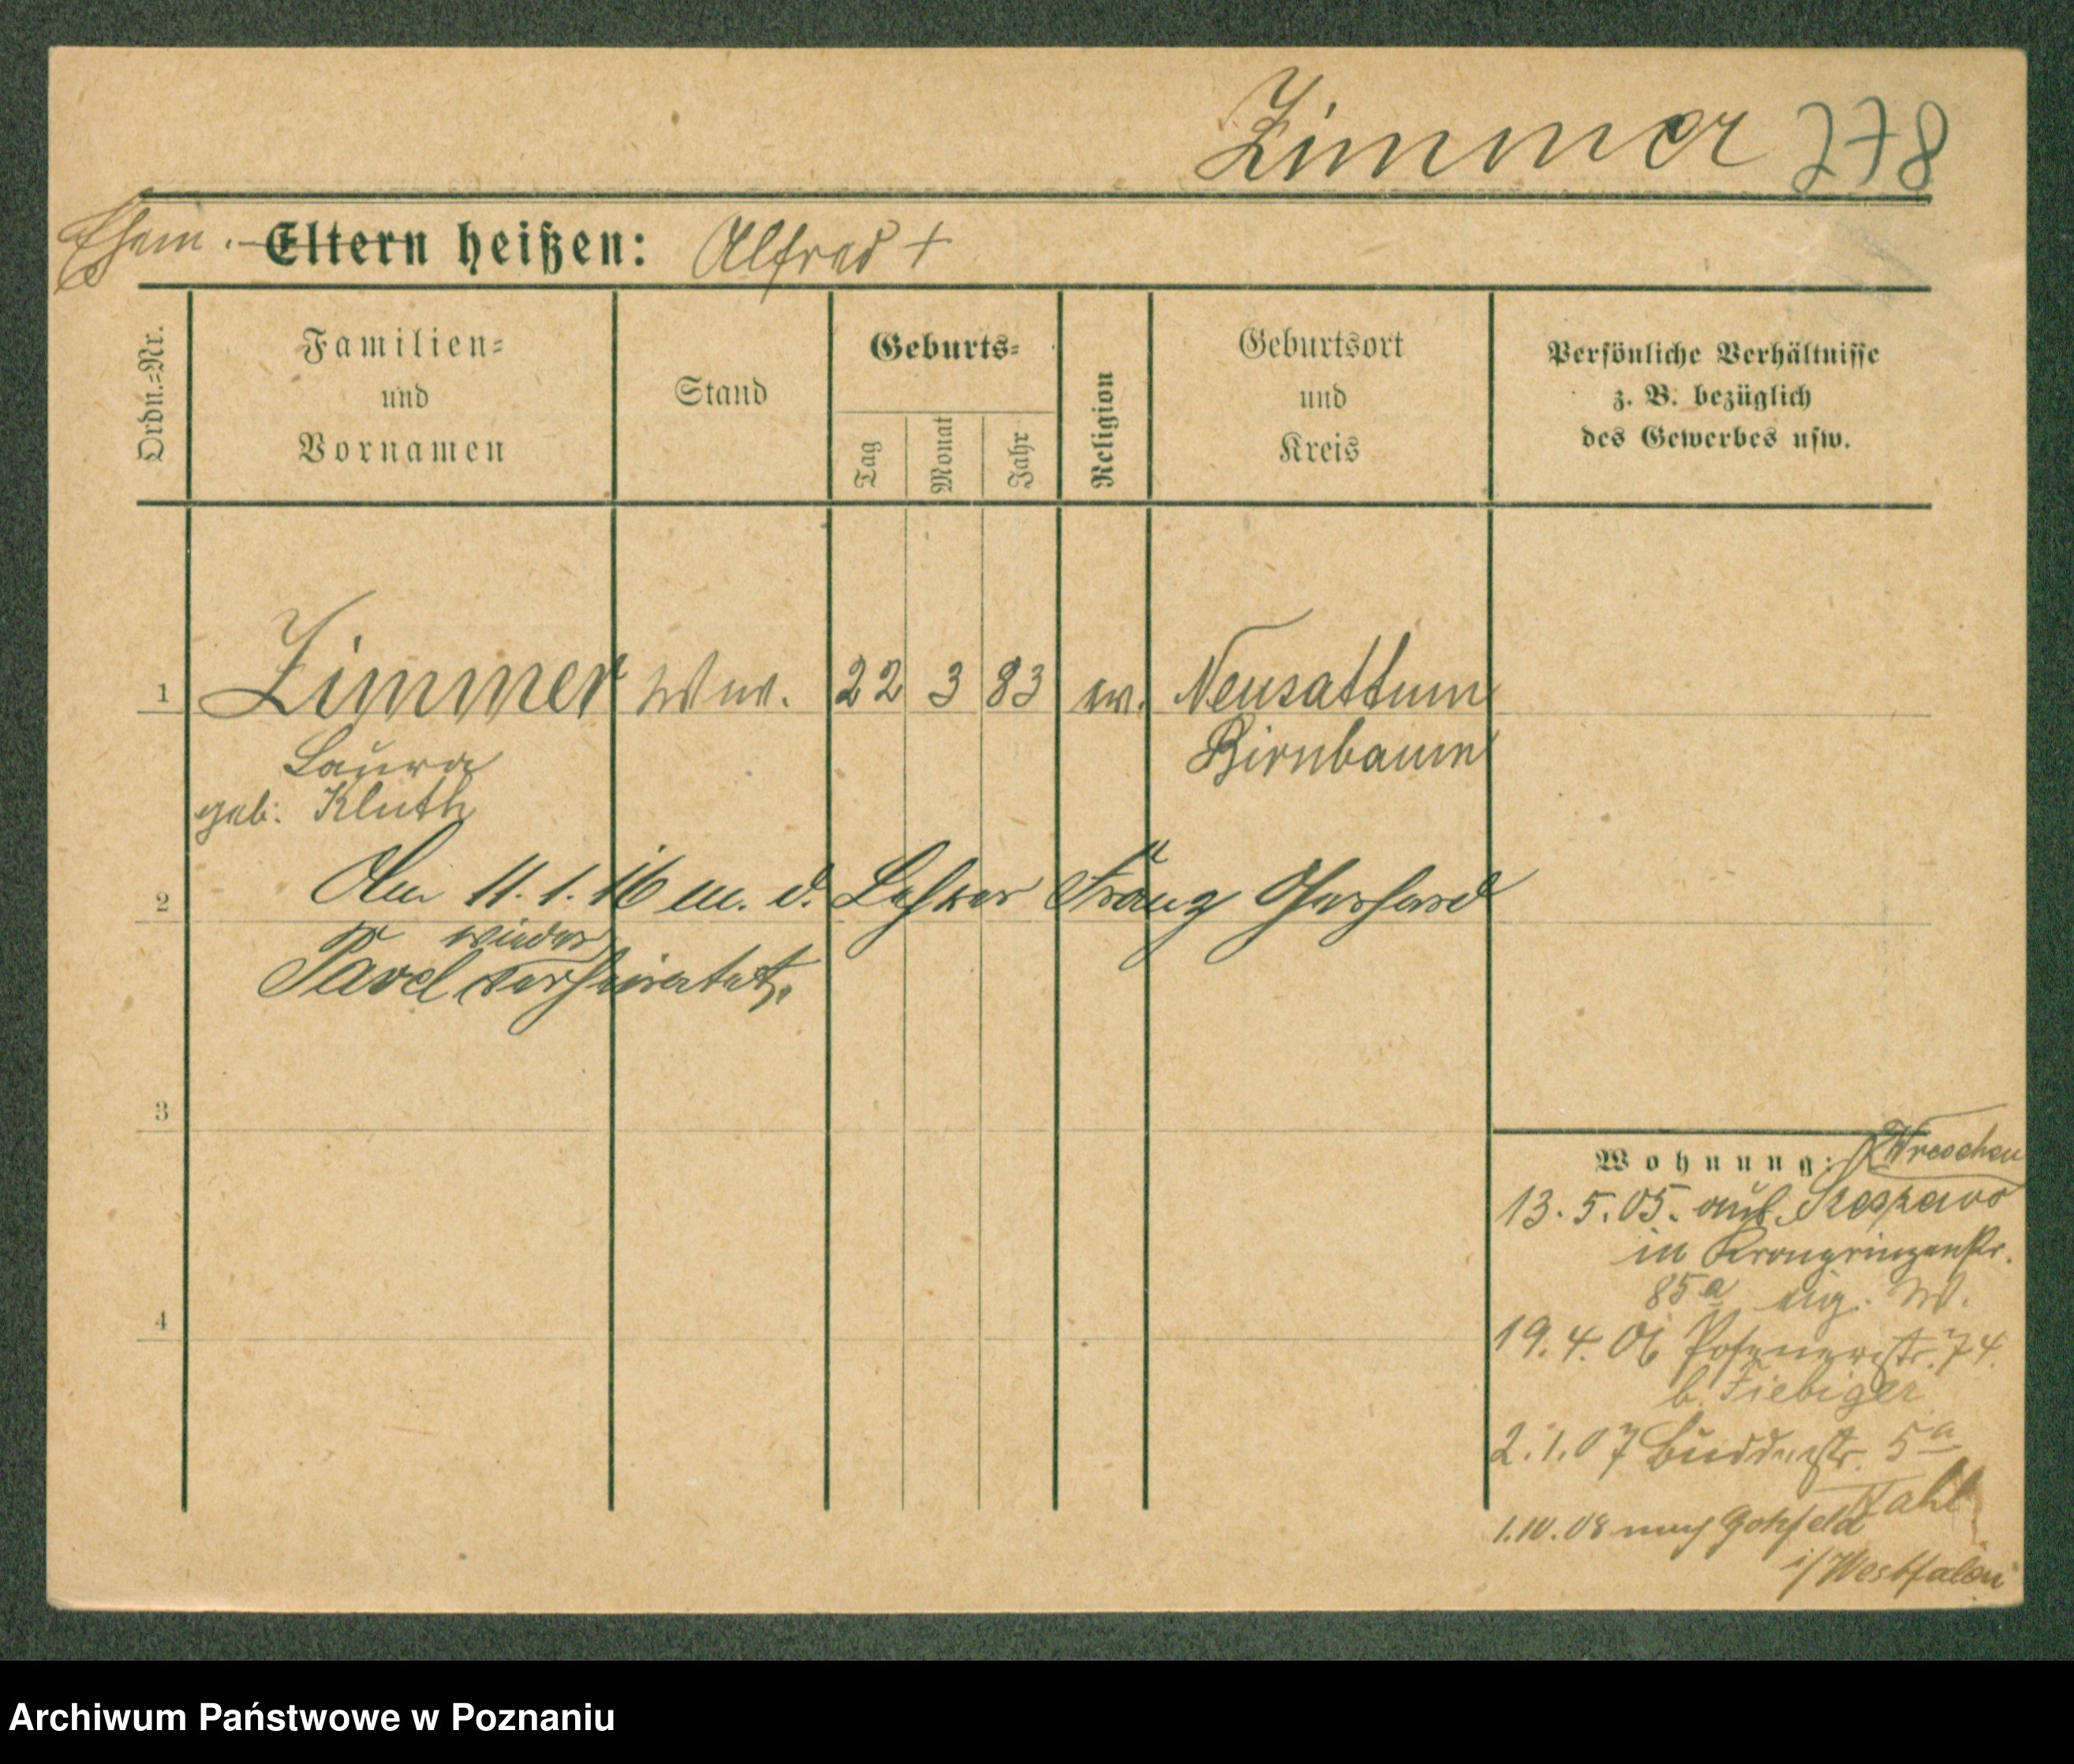 Zimmer 278
Ehem. Eltern heißen: Alfred +
Ordn.=Nr.
Familien=
und
Vornamen
Stand
Geburts=
Tag
Monat
Jahr
Religion
Geburtsort
und
Kreis
Persönliche Verhältnisse
z. B. bezüglich
des Gewerbes usw.
1 Zimmer Ww. 22 3 83 ev. Neusattum
Laura Birnbaum
geb. Kluth
2 Am 11.1.16 m. d. Lehrer Franz Gerhard
wieder
Pavel verheiratet.
3
4
Wohnung: Wreschen
13.5.05. aus
in Kronprinzenstr.
85a eig. W.
19.4.06 Posenerstr. 74.
b. Fiebiger
2.1.07 Buddestr. 5a
1.10.08 nach Gohfeld
i/Westfalen
Archiwum Państwowe w Poznaniu